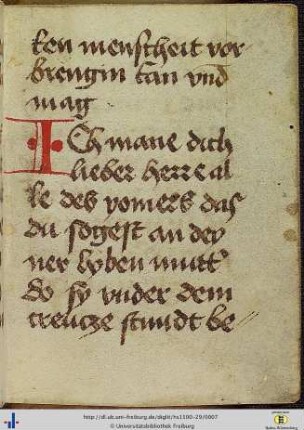 ken menscheit vor
brengin kan vnd
mag
Ich mane dich
lieber herre al
le des yomers das
du sogest an dey
ner lyben mutt'
do sy vnder dem
creucze stundt be
http://dl.ub.uni-freiburg.de/diglit/hs1500-29/0007
© Universitätsbibliothek Freiburg